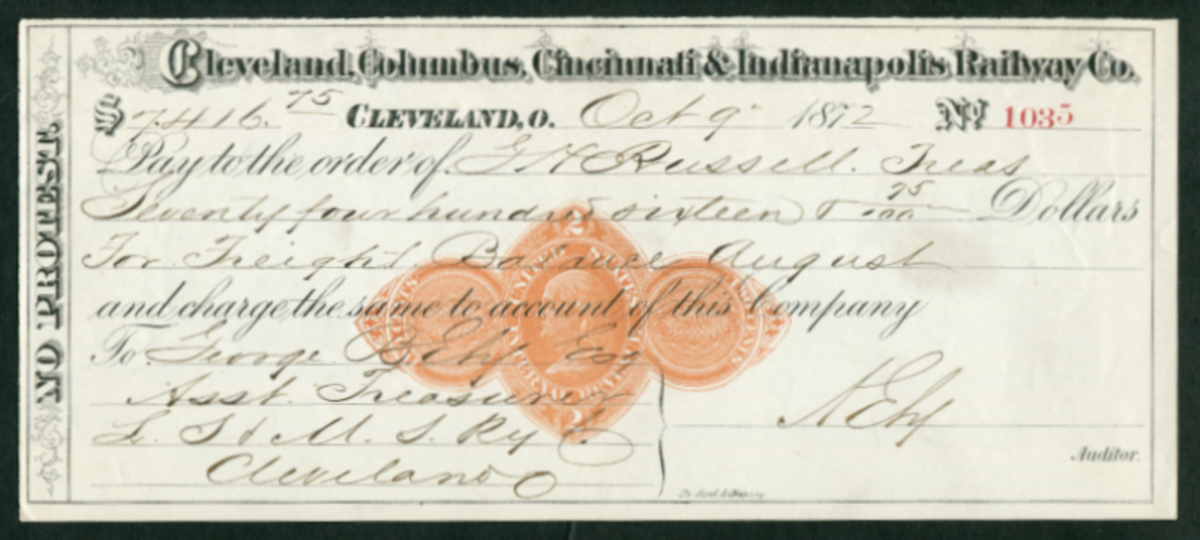 Cleveland, Columbus, Cincinnati & Indianapolis Railway Co.
$ 7416.75 CLEVELAND, O. Oct 9 1872 No. 1035
Pay to the order of G H Russell. Treas
Seventy four hundred sixteen & 75/100 Dollars
For Freight Balance August
and charge the same to account of this Company
To George B Ely Esq
Asst. Treasurer
L. S & M. S. Ry Co.
Cleveland O
Auditor.
NO PROTEST
2
UNITED STATES
INTERNAL REVENUE
2